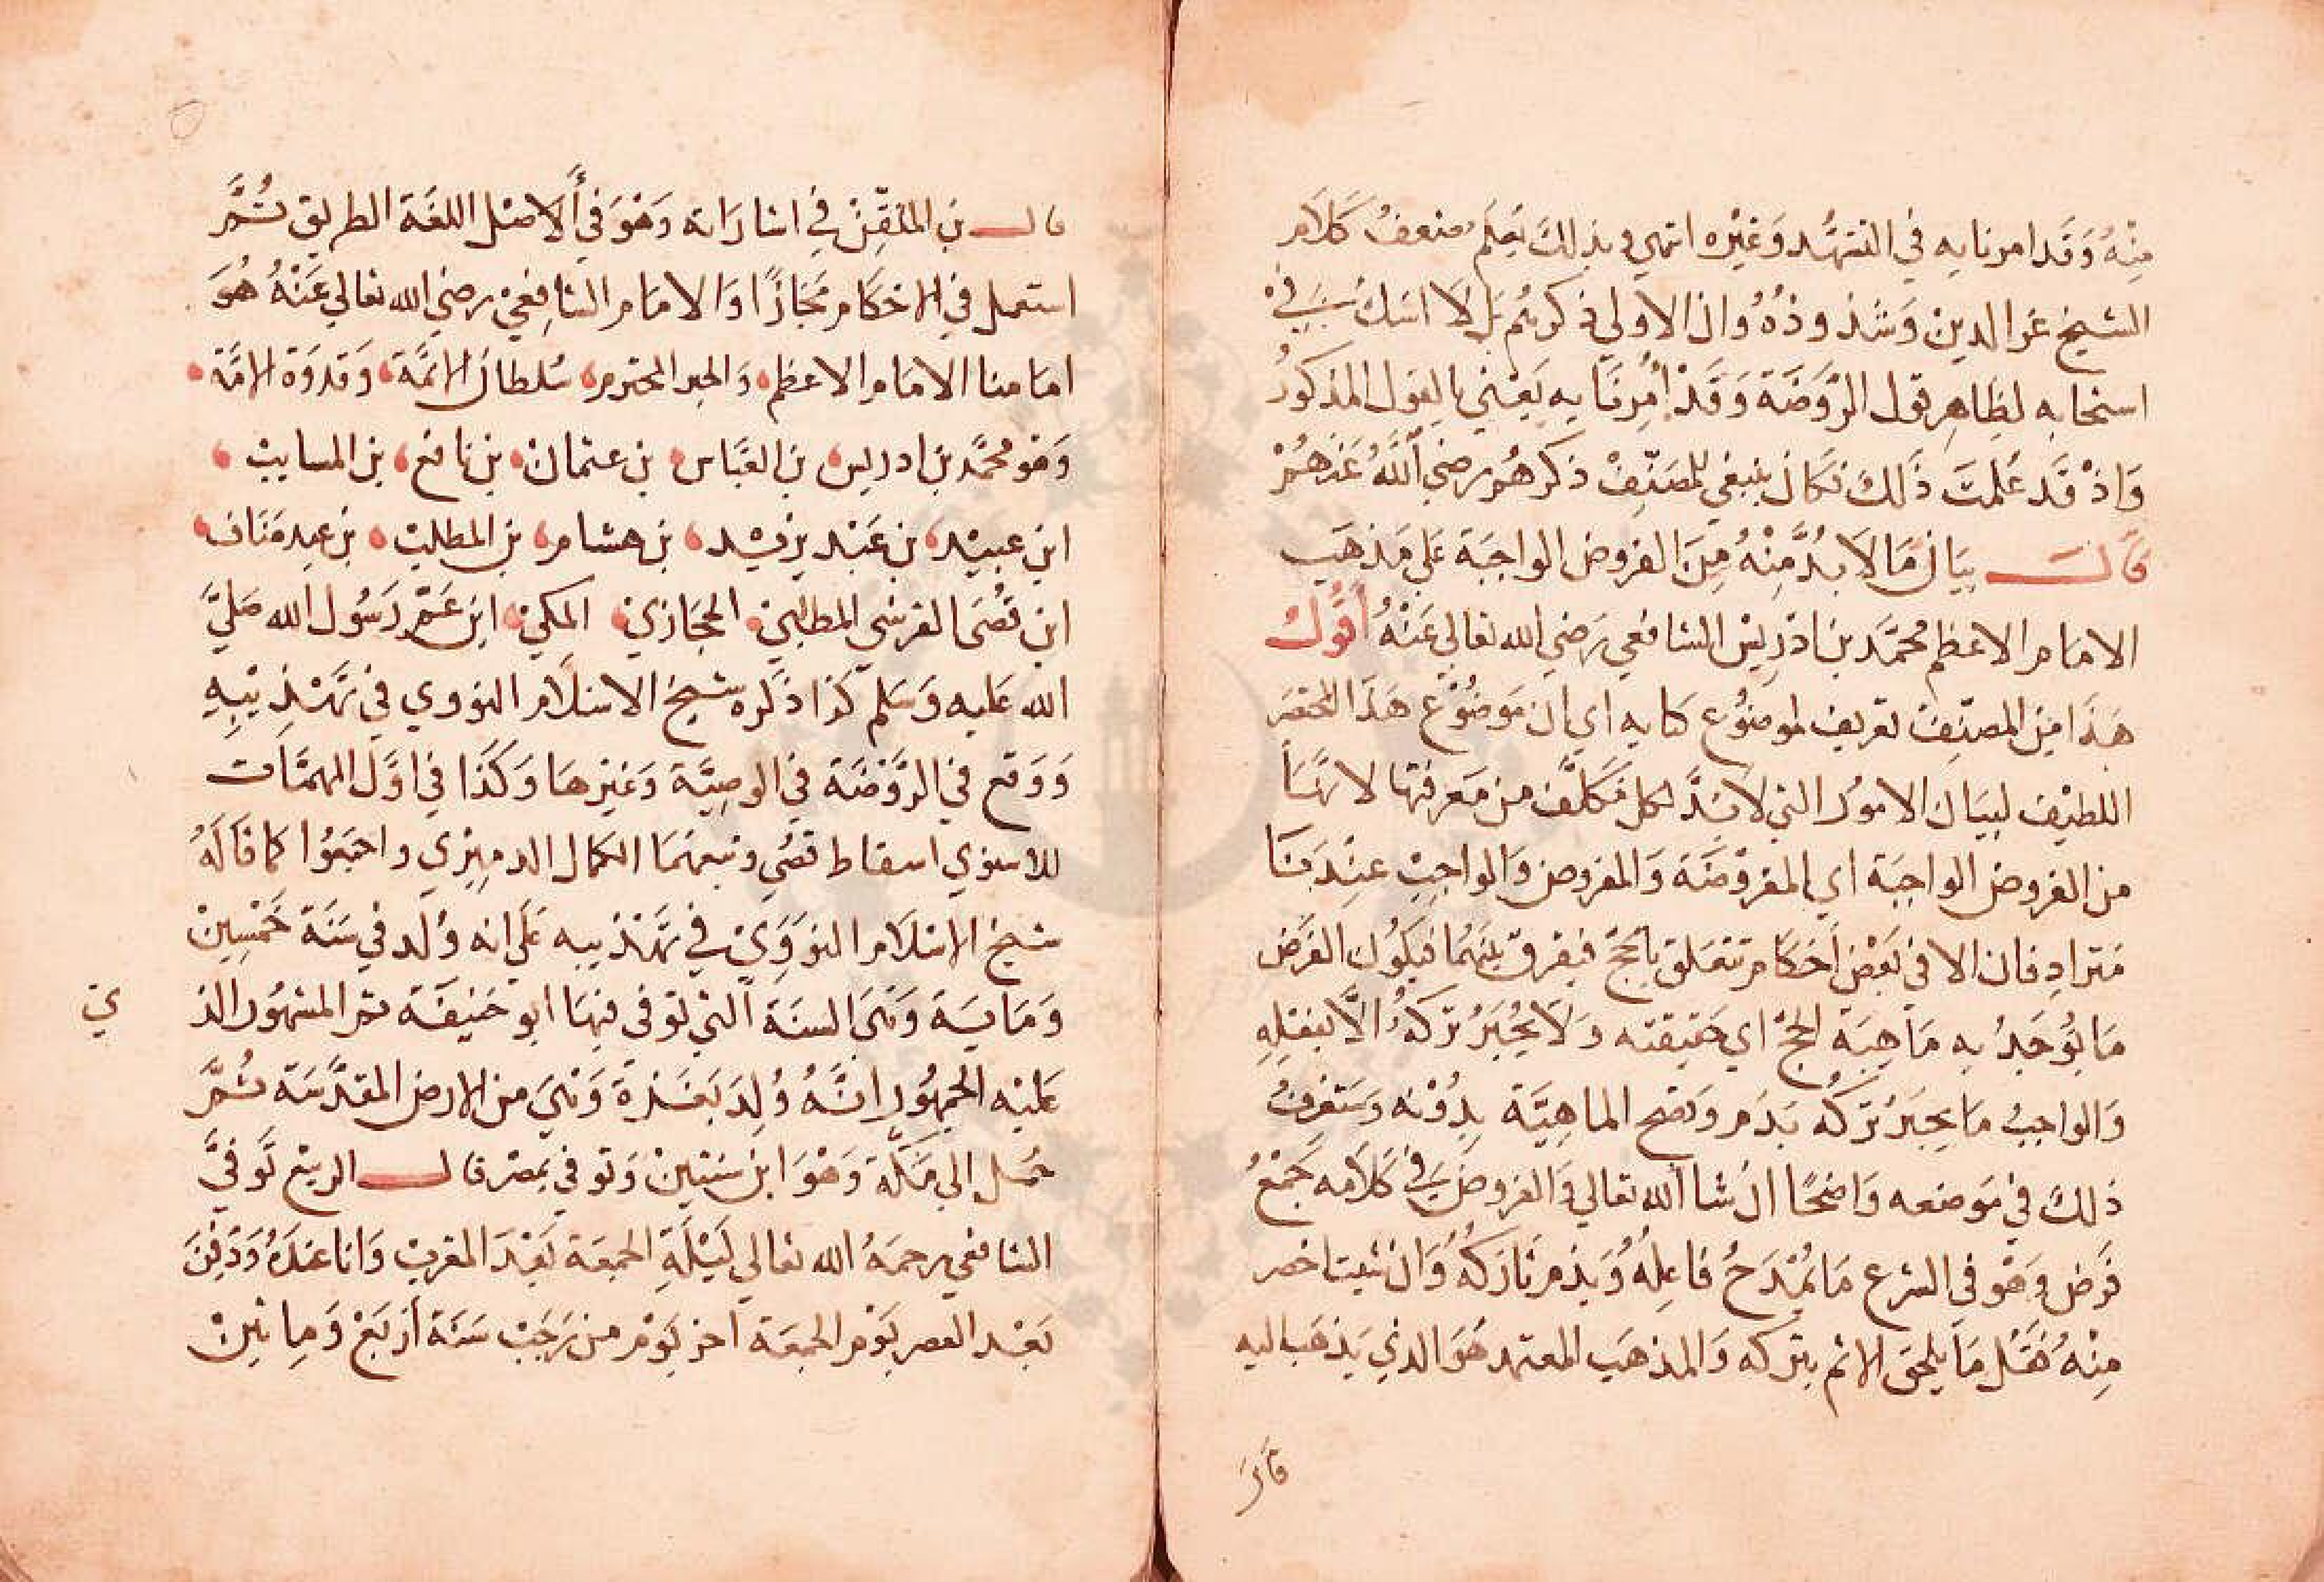 مِنْهُ وَقَد امرنا به في التشهُّد وَغَيْره انتهي وبذلك يُعلَم ضعفُ كَلَام
الشيخ عز الدين وَشذوذُهُ وان الاولي ذكرهُم بَل لَا اشك في
استحابه لظاهِر قول الرَّوضَة وَقَدْ أُمِرنَا بِه يَعْني بالقول المذكورُ
وَاذْ قَد عَلمتَ ذَلكَ فكان ينبغي للمصَنّفِ ذكرهُم رضي اللَّهُ عَنهُمْ
قَالَ بيَان مَا لَا بُدَّ مِنْهُ مِنَ الفروض الواجبَة عَلي مَذهَب
الامام الاعظم محمَّد بن ادْرِيسْ الشافعي رَضي الله تعالي عَنْهُ أقُولُ
هَذا مِن المصنّفِ تعريف لموضوُع كتابه اي ان مَوضوُع هَذَا المختصَر
اللطيْف لبيَان الامور التي لَا بُدَّ لكل مُكلَّف من مَعرفتها لانهَّا
من الفروض الواجبَة اي المفروْضَة وَالمفروض وَالواجِبْ عنِدَنَا
مترادِفان الا في بَعْض أحْكام تتعَلق بالحَجّ فيفرق بيْنَهُما فيَكوُن الفرْض
مَا يوُجَدُ به مَاهيَة الحَجّ اي حَقيقته وَلَا يُجْبَرُ تركهُ الَّا بفعْلِهِ
وَالواجبُ مَا يجبَرُ تَركُه بدَم وَتصح الماهِيَّة بدُوْنه وَسَتعرفُ
ذلكَ في مَوضعه وَاضحًا ان شا الله تعالي وَالفروضَ في كَلَامه جَمْعُ
فَرض وَهْو في الشرع مَا يُمْدَحُ فاعِلهُ وُيَذم تَاركَهُ وَان شيت اخصر
مِنْهُ فقل مَا يلحق الاثم بتركه وَالمذهَب المعتمد هُوَ الذي يَذهَب اليه
قال
قال بن الملَقِّنْ في اشارَاته وَهْوَ في أَلاصْل اللغَة الطريق ثُمَّ
استعمل في الاحْكام مجَازًا وَالامَام الشافِعيْ رضي الله تعالي عَنْهُ هُوَ
امَامنا الامَام الاعظم وَالحبر المحترم سُلطان الائمَّة وَقدوَة الامَّة
وَهْو محمَّد بن ادريس بن العَبَّاس بن عثمان بن نافع بن السايبْ
ابن عبيْد بن عَبْد يزيْد بن هشام بن المطلبْ بن عبد مَنَاف
ابن قصَى القرشي المطلبيْ الحجَازيْ المكيْ ابَن عَمّ رَسُول الله صَليَّ
الله عَليه وَسَلم كَذا ذَكره شيخ الاسْلَام النووي في تَهْذِيْبهِ
وَوَقع في الرَّوْضَة في الوصِيَّة وَغيْرهَا وَكَذَا في اوَّل المهمَّات
للاسنوي اسقاط قصَي وتبعهُمَا الكمال الدميْري واحتجُوا كما قاَلَهُ
شيخ الاسْلَام النوَوَيْ في تَهْذيبه عَلَي انه وُلد في سَنَة خَمْسِينْ
وَمَايَة وَهَيَ السنَة التي توفي فيهَا ابو حَنيفَة ثم المشهُور الذ
ي
عَليْه الجمهُور انَّهُ وُلِدَ بَغَزةَ وَهْيَ من الارض المقدَّسَة ثُمَّ
حُمل إلي مَكَّة وَهْوَ ابن سَنَتينْ وَتوفي بمصْر قال الربيْع تَوفيَّ
الشافعي رحمَهُ الله تعالي لَيْلَةِ الجمعَة بَعْدَ المغربْ وَانا عندَهُ وَدُفِنَ
بَعْد العصر يَوْم الجمعَة آخر يَوْم من رَجَبْ سَنَة أرْبَعْ وَمِاتيْنْ